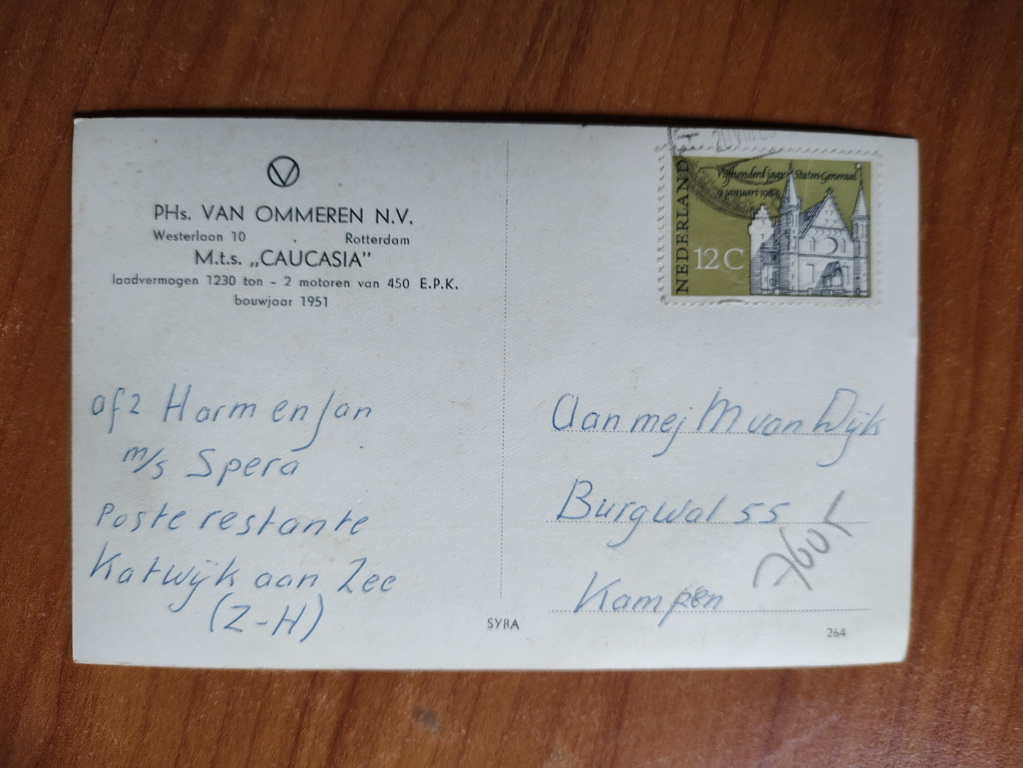 PHs. VAN OMMEREN N.V.
Westerlaan 10 Rotterdam
M.t.s. „CAUCASIA”
laadvermogen 1230 ton - 2 motoren van 450 E.P.K.
bouwjaar 1951
afz Harm en Jan
m/s Spera
Poste restante
Katwijk aan Zee
(Z-H)
SYRA
NEDERLAND
Vijfhonderd jaar Staten Generaal
9 januari 1964
12 C
Aan mej M van Dijk
Burgwal 55
Kampen
264